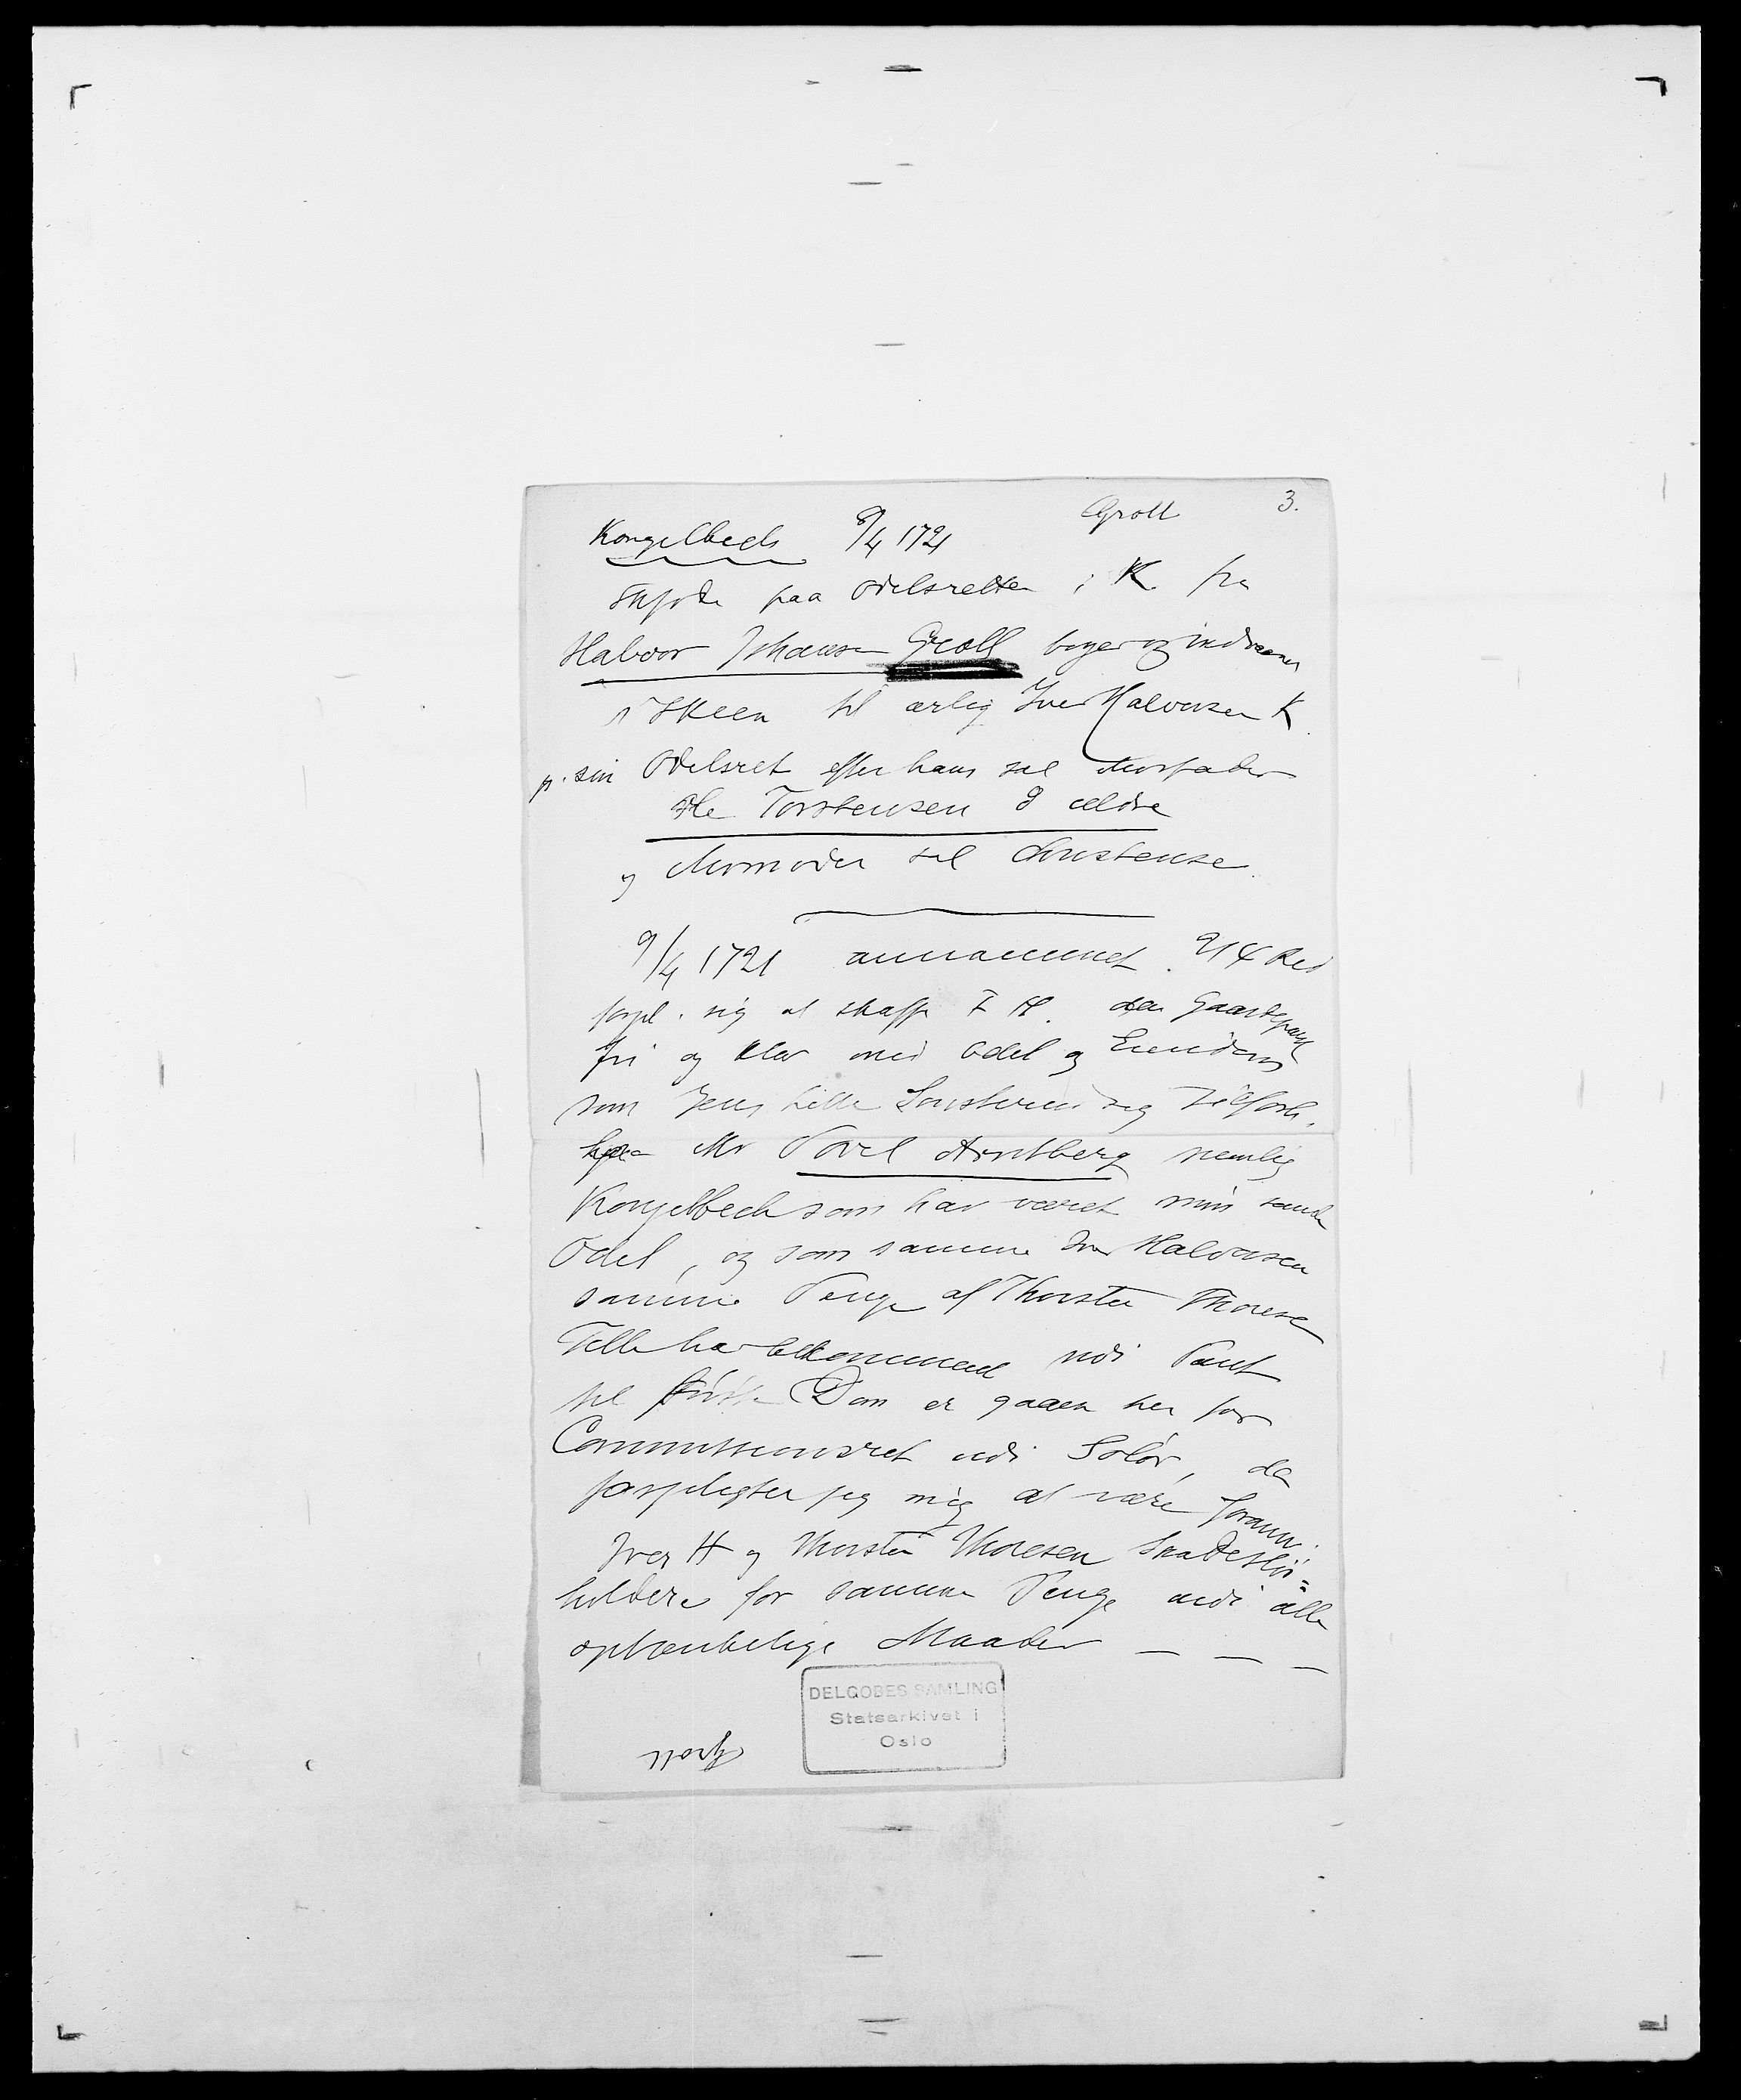 Groll 3.
Kongelbech 8/4 1721
Skjøde paa Odelsretten i K. fra
Halvor Johansen Groll borger og indvaaner
i Skeen til ærlig Iver Halvorsen K.
p. sin Odelsret efter hans sal Morfader
Ole Torstensen d ældre
og Mormoder sal Christense.
9/4 1721 annammet 214 Rd
forpl. sig at skaffe I H. den Gaardepart
fri og klar med Odel og Eiendom
som Jens sig tilforh.
Mr Povel Arntberg nemlig
Kongelbech som har været min sande
Odel, og som samme Iver Halvorsen
samme Penge af Thorsten Thoresen
Telle har bekommed udi Pant
til Dom er gaaen her for
Commissionsret udi Solør, da
forpligter jeg mig at være forann.
Iver H og Thorsten Thoresen Skadesløs=
holdere for samme Penge udi alle
optænkelige Maader _ _ _
DELGOBES SAMLING
Statsarkivet i
Oslo
Groll